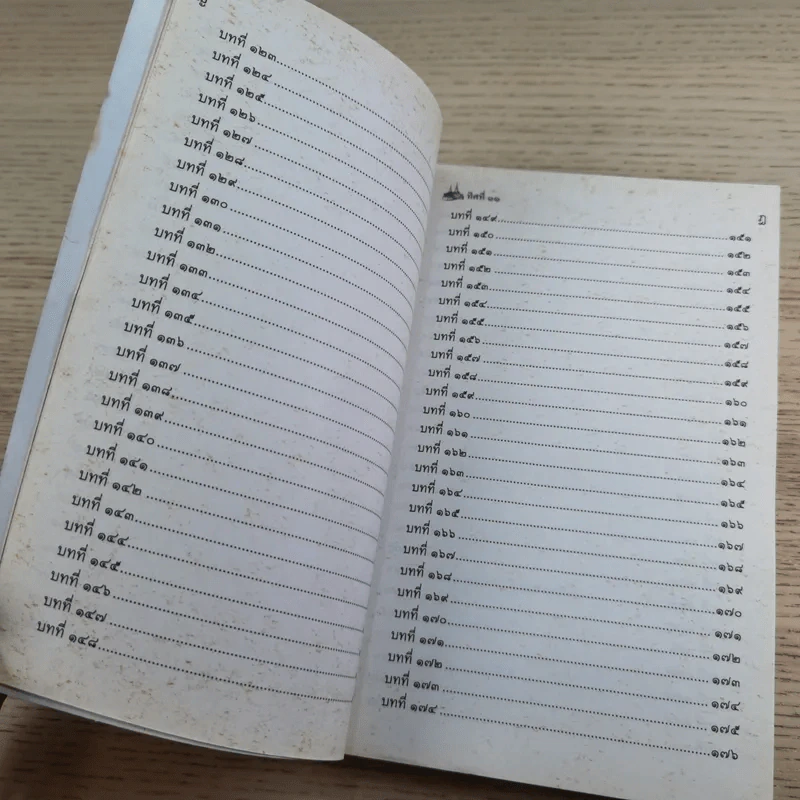 บทที่ ๑๒๓..............................
บทที่ ๑๒๔..............................
บทที่ ๑๒๕..............................
บทที่ ๑๒๖..............................
บทที่ ๑๒๗..............................
บทที่ ๑๒๘..............................
บทที่ ๑๒๙..............................
บทที่ ๑๓๐..............................
บทที่ ๑๓๑..............................
บทที่ ๑๓๒..............................
บทที่ ๑๓๓..............................
บทที่ ๑๓๔..............................
บทที่ ๑๓๕..............................
บทที่ ๑๓๖..............................
บทที่ ๑๓๗..............................
บทที่ ๑๓๘..............................
บทที่ ๑๓๙..............................
บทที่ ๑๔๐..............................
บทที่ ๑๔๑..............................
บทที่ ๑๔๒..............................
บทที่ ๑๔๓..............................
บทที่ ๑๔๔..............................
บทที่ ๑๔๕..............................
บทที่ ๑๔๖..............................
บทที่ ๑๔๗..............................
บทที่ ๑๔๘..............................
ทิศที่ ๑๑ ฎ
บทที่ ๑๔๙..............................๑๕๑
บทที่ ๑๕๐..............................๑๕๒
บทที่ ๑๕๑..............................๑๕๓
บทที่ ๑๕๒..............................๑๕๔
บทที่ ๑๕๓..............................๑๕๕
บทที่ ๑๕๔..............................๑๕๖
บทที่ ๑๕๕..............................๑๕๗
บทที่ ๑๕๖..............................๑๕๘
บทที่ ๑๕๗..............................๑๕๙
บทที่ ๑๕๘..............................๑๖๐
บทที่ ๑๕๙..............................๑๖๑
บทที่ ๑๖๐..............................๑๖๒
บทที่ ๑๖๑..............................๑๖๓
บทที่ ๑๖๒..............................๑๖๔
บทที่ ๑๖๓..............................๑๖๕
บทที่ ๑๖๔..............................๑๖๖
บทที่ ๑๖๕..............................๑๖๗
บทที่ ๑๖๖..............................๑๖๘
บทที่ ๑๖๗..............................๑๖๙
บทที่ ๑๖๘..............................๑๗๐
บทที่ ๑๖๙..............................๑๗๑
บทที่ ๑๗๐..............................๑๗๒
บทที่ ๑๗๑..............................๑๗๓
บทที่ ๑๗๒..............................๑๗๔
บทที่ ๑๗๓..............................๑๗๕
บทที่ ๑๗๔..............................๑๗๖